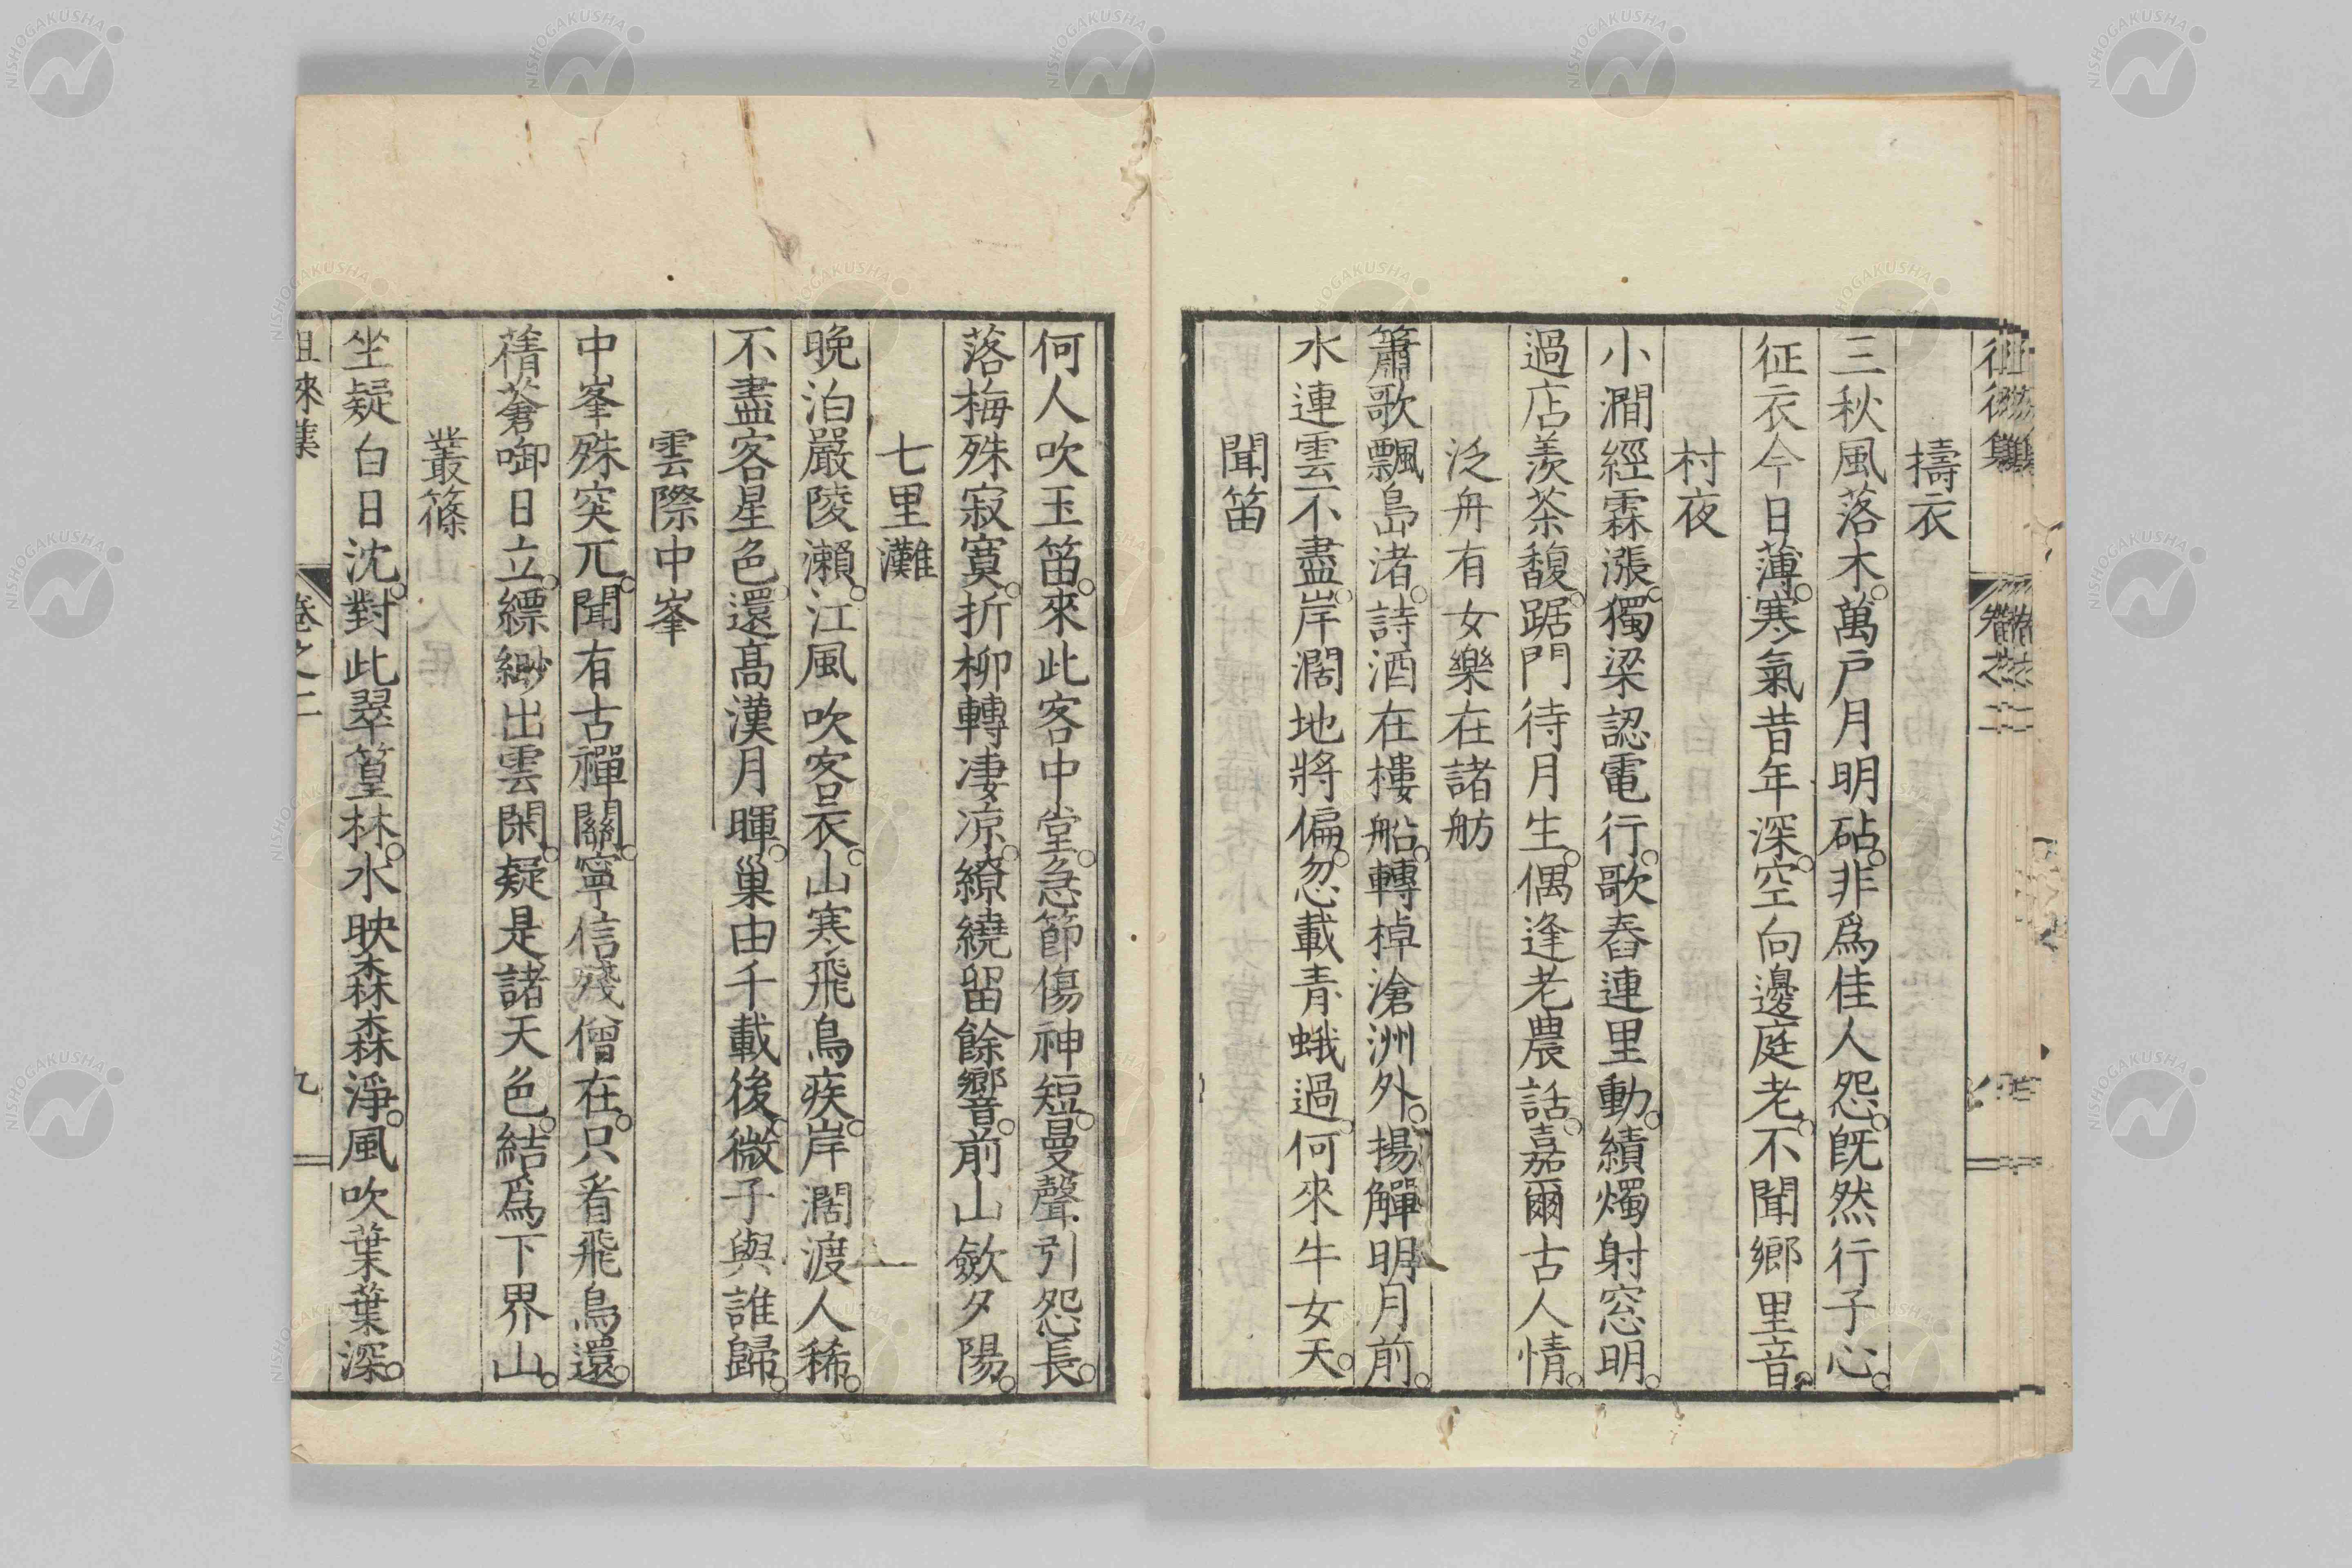 擣衣
三秋風落木。萬戸月明砧。非爲佳人怨。既然行子心。
征衣今日薄。寒氣昔年深。空向邊庭老。不聞鄉里音。
村夜
小澗經霖漲。獨梁認電行。歌舂連里動。績燭射窓明。
過店羨茶馥。踞門待月生。偶逢老農話。嘉爾古人情。
泛舟有女樂在諸舫
簫歌飄島渚。詩酒在樓船。轉棹滄洲外。揚觶明月前。
水連雲不盡。岸濶地將偏。忽載青蛾過。何來牛女天。
聞笛
何人吹玉笛。來此客中堂。急節傷神短。曼聲引怨長。
落梅殊寂寞。折柳轉凄凉。繚繞留餘響。前山斂夕陽。
七里灘
晚泊嚴陵瀨。江風吹客衣。山寒飛鳥疾。岸濶渡人稀。
不盡客星色。還高漢月暉。巢由千載後。微子與誰歸。
雲際中峯
中峯殊突兀。聞有古禪關。寧信殘僧在。只看飛鳥還。
蒨蒼啣日立。縹緲出雲閑。疑是諸天色。結爲下界山。
叢篠
坐疑白日沈。對此翠篁林。水映森森淨。風吹葉葉深。
徂徠集 卷之二 九
NISHOGAKUSHA